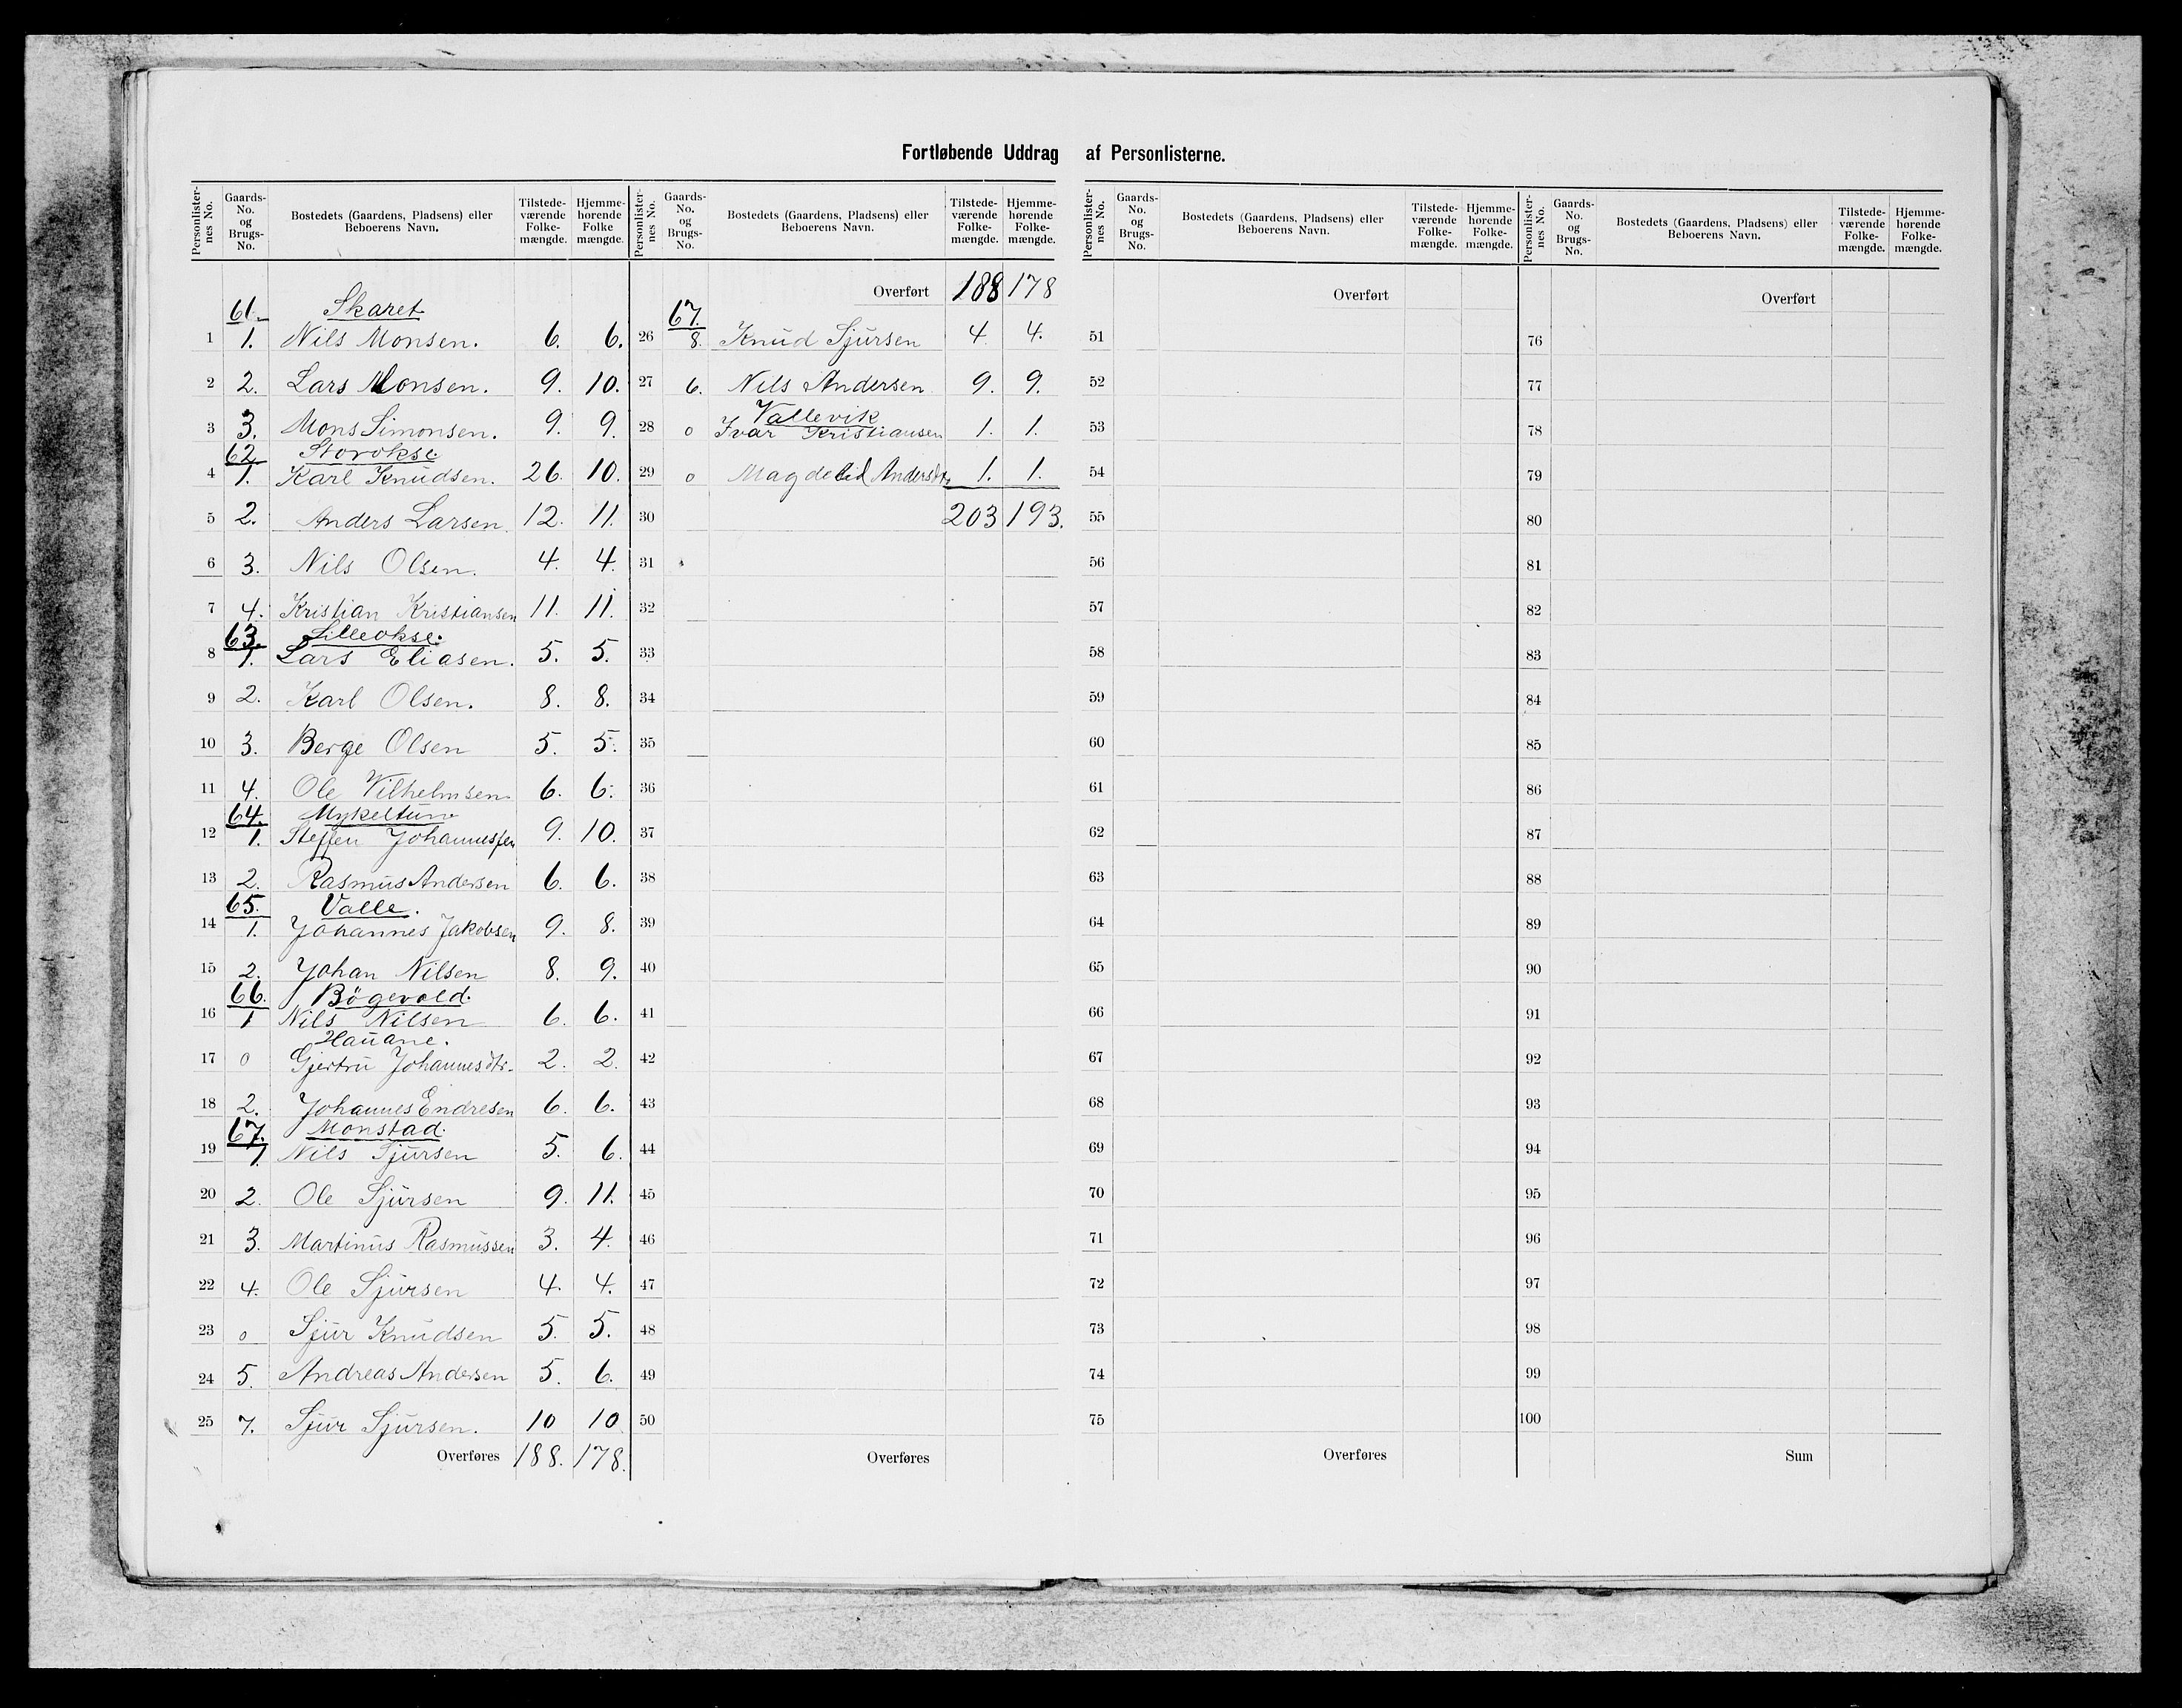 Fortløbende Uddrag af Personlisterne.
Personlisternes No. | Gaards-No. og Brugs-No. | Bostedets (Gaardens, Pladsens) eller Beboerens Navn. | Tilstedeværende Folkemængde. | Hjemmehørende Folkemængde.
61. Skaret
1 1. Nils Monsen. 6. 6.
2 2. Lars Monsen. 9. 10.
3 3. Mons Simonsen. 9. 9.
62 Storokse.
4 1. Karl Knudsen. 26. 10.
5 2. Anders Larsen. 12. 11.
6 3. Nils Olsen. 4. 4.
7 4. Kristian Kristiansen 11. 11.
63. Lilleokse.
8 1. Lars Eliasen. 5. 5.
9 2. Karl Olsen. 8. 8.
10 3. Berge Olsen 5. 5.
11 4. Ole Vilhelmsen. 6. 6.
64. Mykeltun.
12 1. Steffen Johannessen 9. 10.
13 2. Rasmus Andersen 6. 6.
65. Valle.
14 1. Johannes Jakobsen 9. 8.
15 2. Johan Nilsen 8. 9.
66. Bögevold.
16 1 Nils Nilsen 6. 6.
Hauane.
17 0 Gjertru Johannesdtr. 2. 2.
18 2. Johannes Endresen 6. 6.
67. Monstad.
19 1. Nils Sjursen 5. 6.
20 2. Ole Sjursen 9. 11.
21 3. Martinus Rasmussen 3. 4.
22 4. Ole Sjursen 4. 4.
23 0 Sjur Knudsen 5. 5.
24 5. Andreas Andersen 5. 6.
25 7. Sjur Sjursen. 10 10
Overføres 188. 178.
Personlisternes No. | Gaards-No. og Brugs-No. | Bostedets (Gaardens, Pladsens) eller Beboerens Navn. | Tilstedeværende Folkemængde. | Hjemmehørende Folkemængde.
Overført 188 178
67.
26 8. Knud Sjursen 4 4.
27 6. Nils Andersen 9. 9.
Vallevik
28 0 Ivar Kristiansen 1. 1.
29 0 Magdelid Andersdtr. 1. 1.
30 203 193.
31
32
33
34
35
36
37
38
39
40
41
42
43
44
45
46
47
48
49
50
Overføres
Personlisternes No. | Gaards-No. og Brugs-No. | Bostedets (Gaardens, Pladsens) eller Beboerens Navn. | Tilstedeværende Folkemængde. | Hjemmehørende Folkemængde.
Overført
51
52
53
54
55
56
57
58
59
60
61
62
63
64
65
66
67
68
69
70
71
72
73
74
75
Overføres
Personlisternes No. | Gaards-No. og Brugs-No. | Bostedets (Gaardens, Pladsens) eller Beboerens Navn. | Tilstedeværende Folkemængde. | Hjemmehørende Folkemængde.
Overført
76
77
78
79
80
81
82
83
84
85
86
87
88
89
90
91
92
93
94
95
96
97
98
99
100
Sum